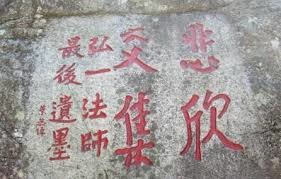 悲欣
交集
弘一法師
最後遺墨